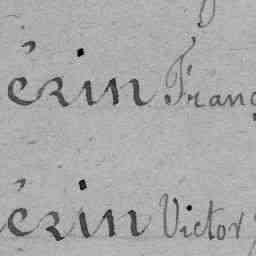 érin Franç
érin Victor